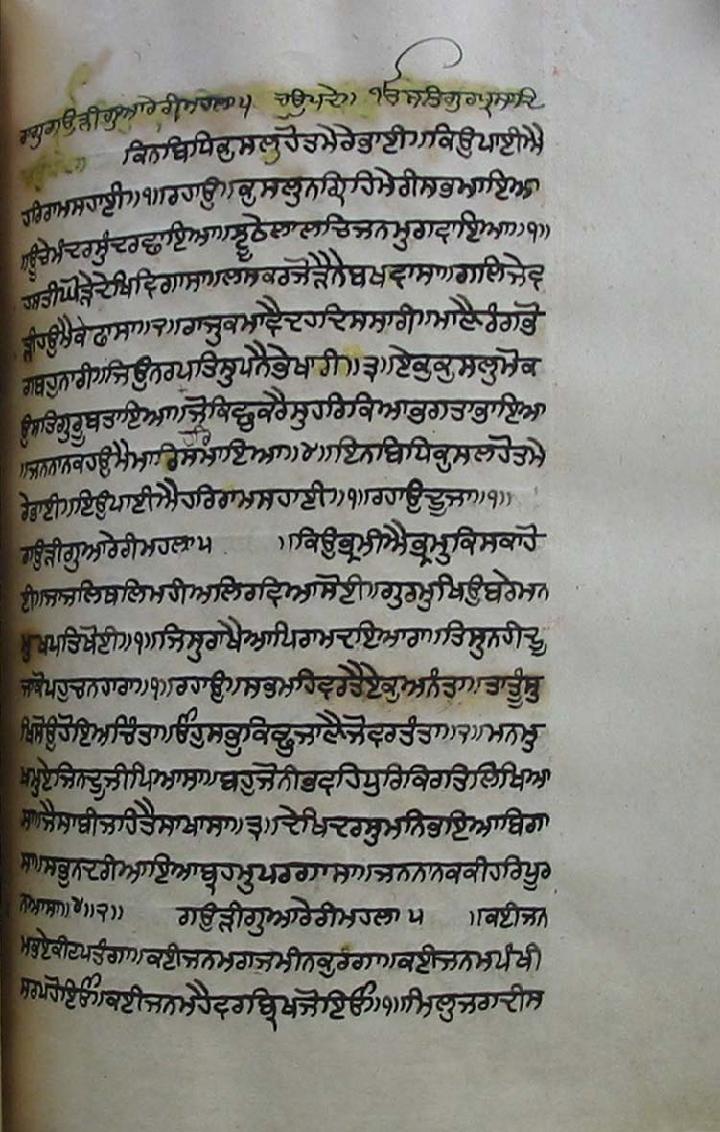 ਰਾਗੁਗਉੜੀਗੁਆਰੇਰੀਮਹਲਾ੫ ਚਉਪਦੇ॥ ੴਸਤਿਗੁਰਪ੍ਰਸਾਦਿ
ਕਿਨਬਿਧਿਕੁਸਲੁਹੋਤਮੇਰੇਭਾਈ॥ਕਿਉਪਾਈਐ
ਹਰਿਰਾਮਸਹਾਈ॥੧॥ਰਹਾਉ॥ਕੁਸਲੁਨਗ੍ਰਿਹਿਮੇਰੀਸਭਮਾਇਆ
॥ਊਚੇਮੰਦਰਸੁੰਦਰਛਾਇਆ॥ਝੂਠੇਲਾਲਚਿਜਨਮੁਗਵਾਇਆ॥੧॥
ਹਸਤੀਘੋੜੇਦੇਖਿਵਿਗਾਸਾ॥ਲਸਕਰਜੋੜੈਨੈਬਖਵਾਸਾ॥ਗਲਿਜੇਵ
ੜੀਹਉਮੈਕੇਫਾਸਾ॥੨॥ਰਾਜੁਕਮਾਵੈਦਹਦਿਸਸਾਰੀ॥ਮਾਣੈਰੰਗਭੋ
ਗਬਹੁਨਾਰੀ॥ਜਿਉਨਰਪਤਿਸੁਪਨੈਭੇਖਾਰੀ॥੩॥ਏਕੁਕੁਸਲੁਮੋਕ
ਉਸਤਿਗੁਰੂਬਤਾਇਆ॥ਜੋਕਿਛੁਕਰੈਸੁਹਰਿਕਿਆਭਗਤਾਭਾਇਆ
॥ਜਨਨਾਨਕਹਉਮੈਮਾਰਿਸਮਾਇਆ॥੪॥ਇਨਾਬਿਧਿਕੁਸਲਹੋਤਮੇ
ਰੇਭਾਈ॥ਇਉਪਾਈਐਹਰਿਰਾਮਸਹਾਈ॥੧॥ਰਹਾਉਦੂਜਾ॥੧॥
ਗਉੜੀਗੁਆਰੇਰੀਮਹਲਾ੫ ॥ਕਿਉਭ੍ਰਮੀਐਭ੍ਰਮੁਕਿਸਕਾਹੋ
ਈ॥ਜਾਜਲਿਥਲਿਮਹੀਅਲਿਰਵਿਆਸੋਈ॥ਗੁਰਮੁਖਿਉਬਰੇਮਨ
ਮੁਖਪਤਿਖੋਈ॥੧॥ਜਿਸੁਰਾਖੈਆਪਿਰਾਮਦਇਆਰਾ॥ਤਿਸੁਨਹੀਦੂ
ਜਾਕੋਪਹੁਚਨਹਾਰਾ॥੧॥ਰਹਾਉ॥ਸਭਮਹਿਵਰਤੈਏਕੁਅਨੰਤਾ॥ਤਾਤੂੰਸੁ
ਖਿਸੋਉਹੋਇਅਚਿੰਤਾ॥ਓਹੁਸਭੁਕਿਛੁਜਾਣੈਜੋਵਰਤੰਤਾ॥੨॥ਮਨਮੁ
ਖਮੁਏਜਿਨਦੂਜੀਪਿਆਸਾ॥ਬਹੁਜੋਨੀਭਵਹਿਧੁਰਿਕਿਰਤਿਲਿਖਿਆ
ਸਾ॥ਜੈਸਾਬੀਜਹਿਤੈਸਾਖਾਸਾ॥੩॥ਦੇਖਿਦਰਸੁਮਨਿਭਇਆਬਿਗਾ
ਸਾ॥ਸਭੁਨਦਰੀਆਇਆਬ੍ਰਹਮੁਪਰਗਾਸਾ॥ਜਨਨਾਨਕਕੀਹਰਿਪੂਰ
ਨਆਸਾ॥੪॥੨॥ ਗਉੜੀਗੁਆਰੇਰੀਮਹਲਾ੫ ॥ਕਈਜਨ
ਮਭਏਕੀਟਪਤੰਗਾ॥ਕਈਜਨਮਗਜਮੀਨਕੁਰੰਗਾ॥ਕਈਜਨਮਪੰਖੀ
ਸਰਪਹੋਇਓ॥ਕਈਜਨਮਹੈਵਰਬ੍ਰਿਖਜੋਇਓ॥੧॥ਮਿਲੁਜਗਦੀਸ